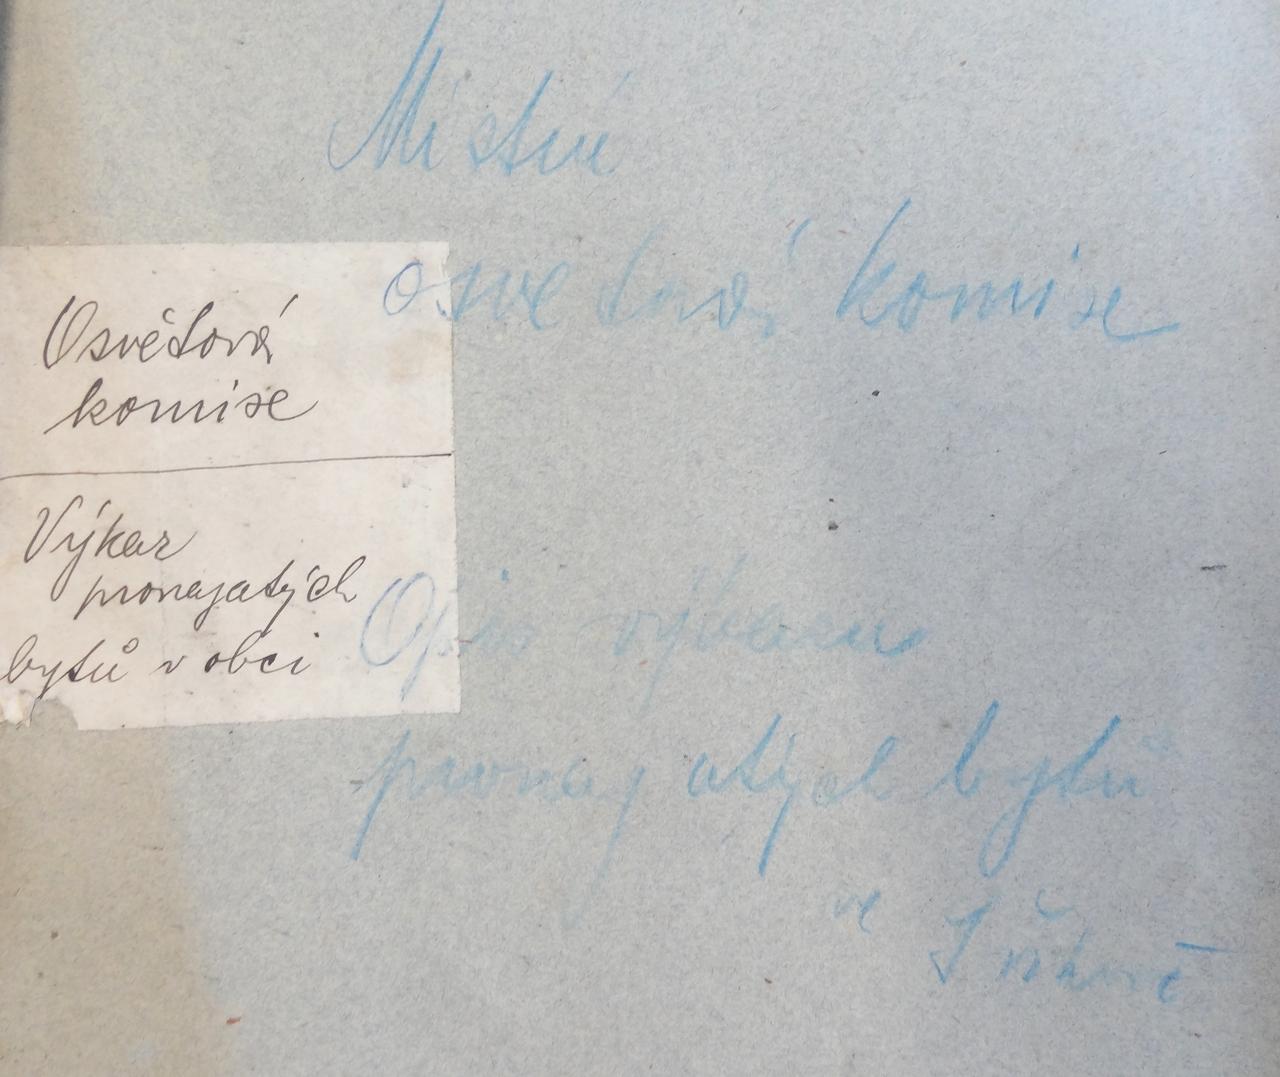 Místní
osvětová komise
Osvětová
komise
Výkaz
pronajatých
bytů v obci
Opis výkazu
pronajatých bytů
ve